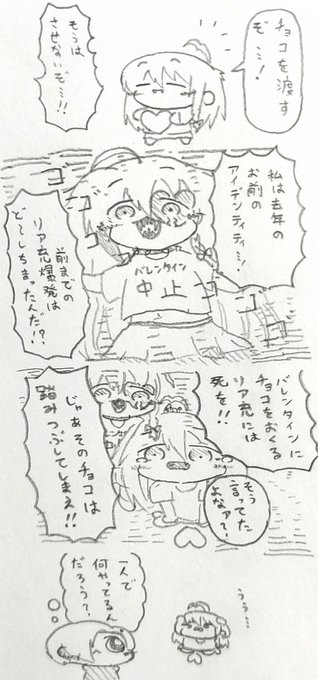 チョコを渡す
ぞ…！
そうは
させないぞ…!!
私は去年の
お前の
アイデンティティ…！
ゴ
ゴ
ゴ
ゴ
ゴ
バレンタイン
中止
前までの
リア充爆発は
どーしちまったんだ!?
バレンタインに
チョコをおくる
リア充には
死を!!
そう
言ってた
よなァ?
じゃあそのチョコは
踏みつぶしてしまえ!!
うぅ…
一人で
何やってるん
だろう?